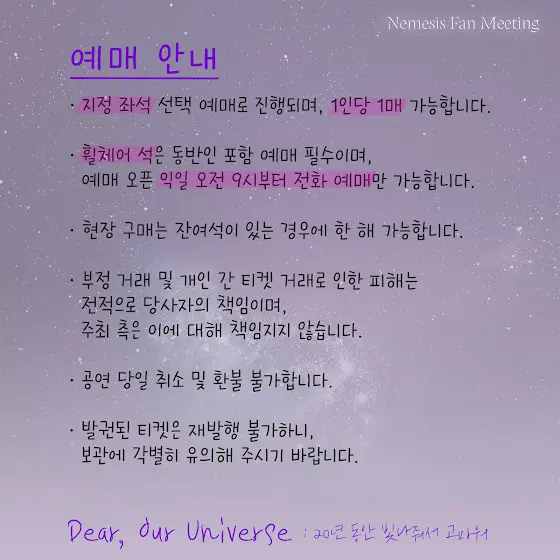 Nemesis Fan Meeting
예매 안내
· 지정 좌석 선택 예매로 진행되며, 1인당 1매 가능합니다.
· 휠체어 석은 동반인 포함 예매 필수이며,
예매 오픈 익일 오전 9시부터 전화 예매만 가능합니다.
· 현장 구매는 잔여석이 있는 경우에 한 해 가능합니다.
· 부정 거래 및 개인 간 티켓 거래로 인한 피해는
전적으로 당사자의 책임이며,
주최 측은 이에 대해 책임지지 않습니다.
· 공연 당일 취소 및 환불 불가합니다.
· 발권된 티켓은 재발행 불가하니,
보관에 각별히 유의해 주시기 바랍니다.
Dear, Our Universe : 20년 동안 빛나줘서 고마워